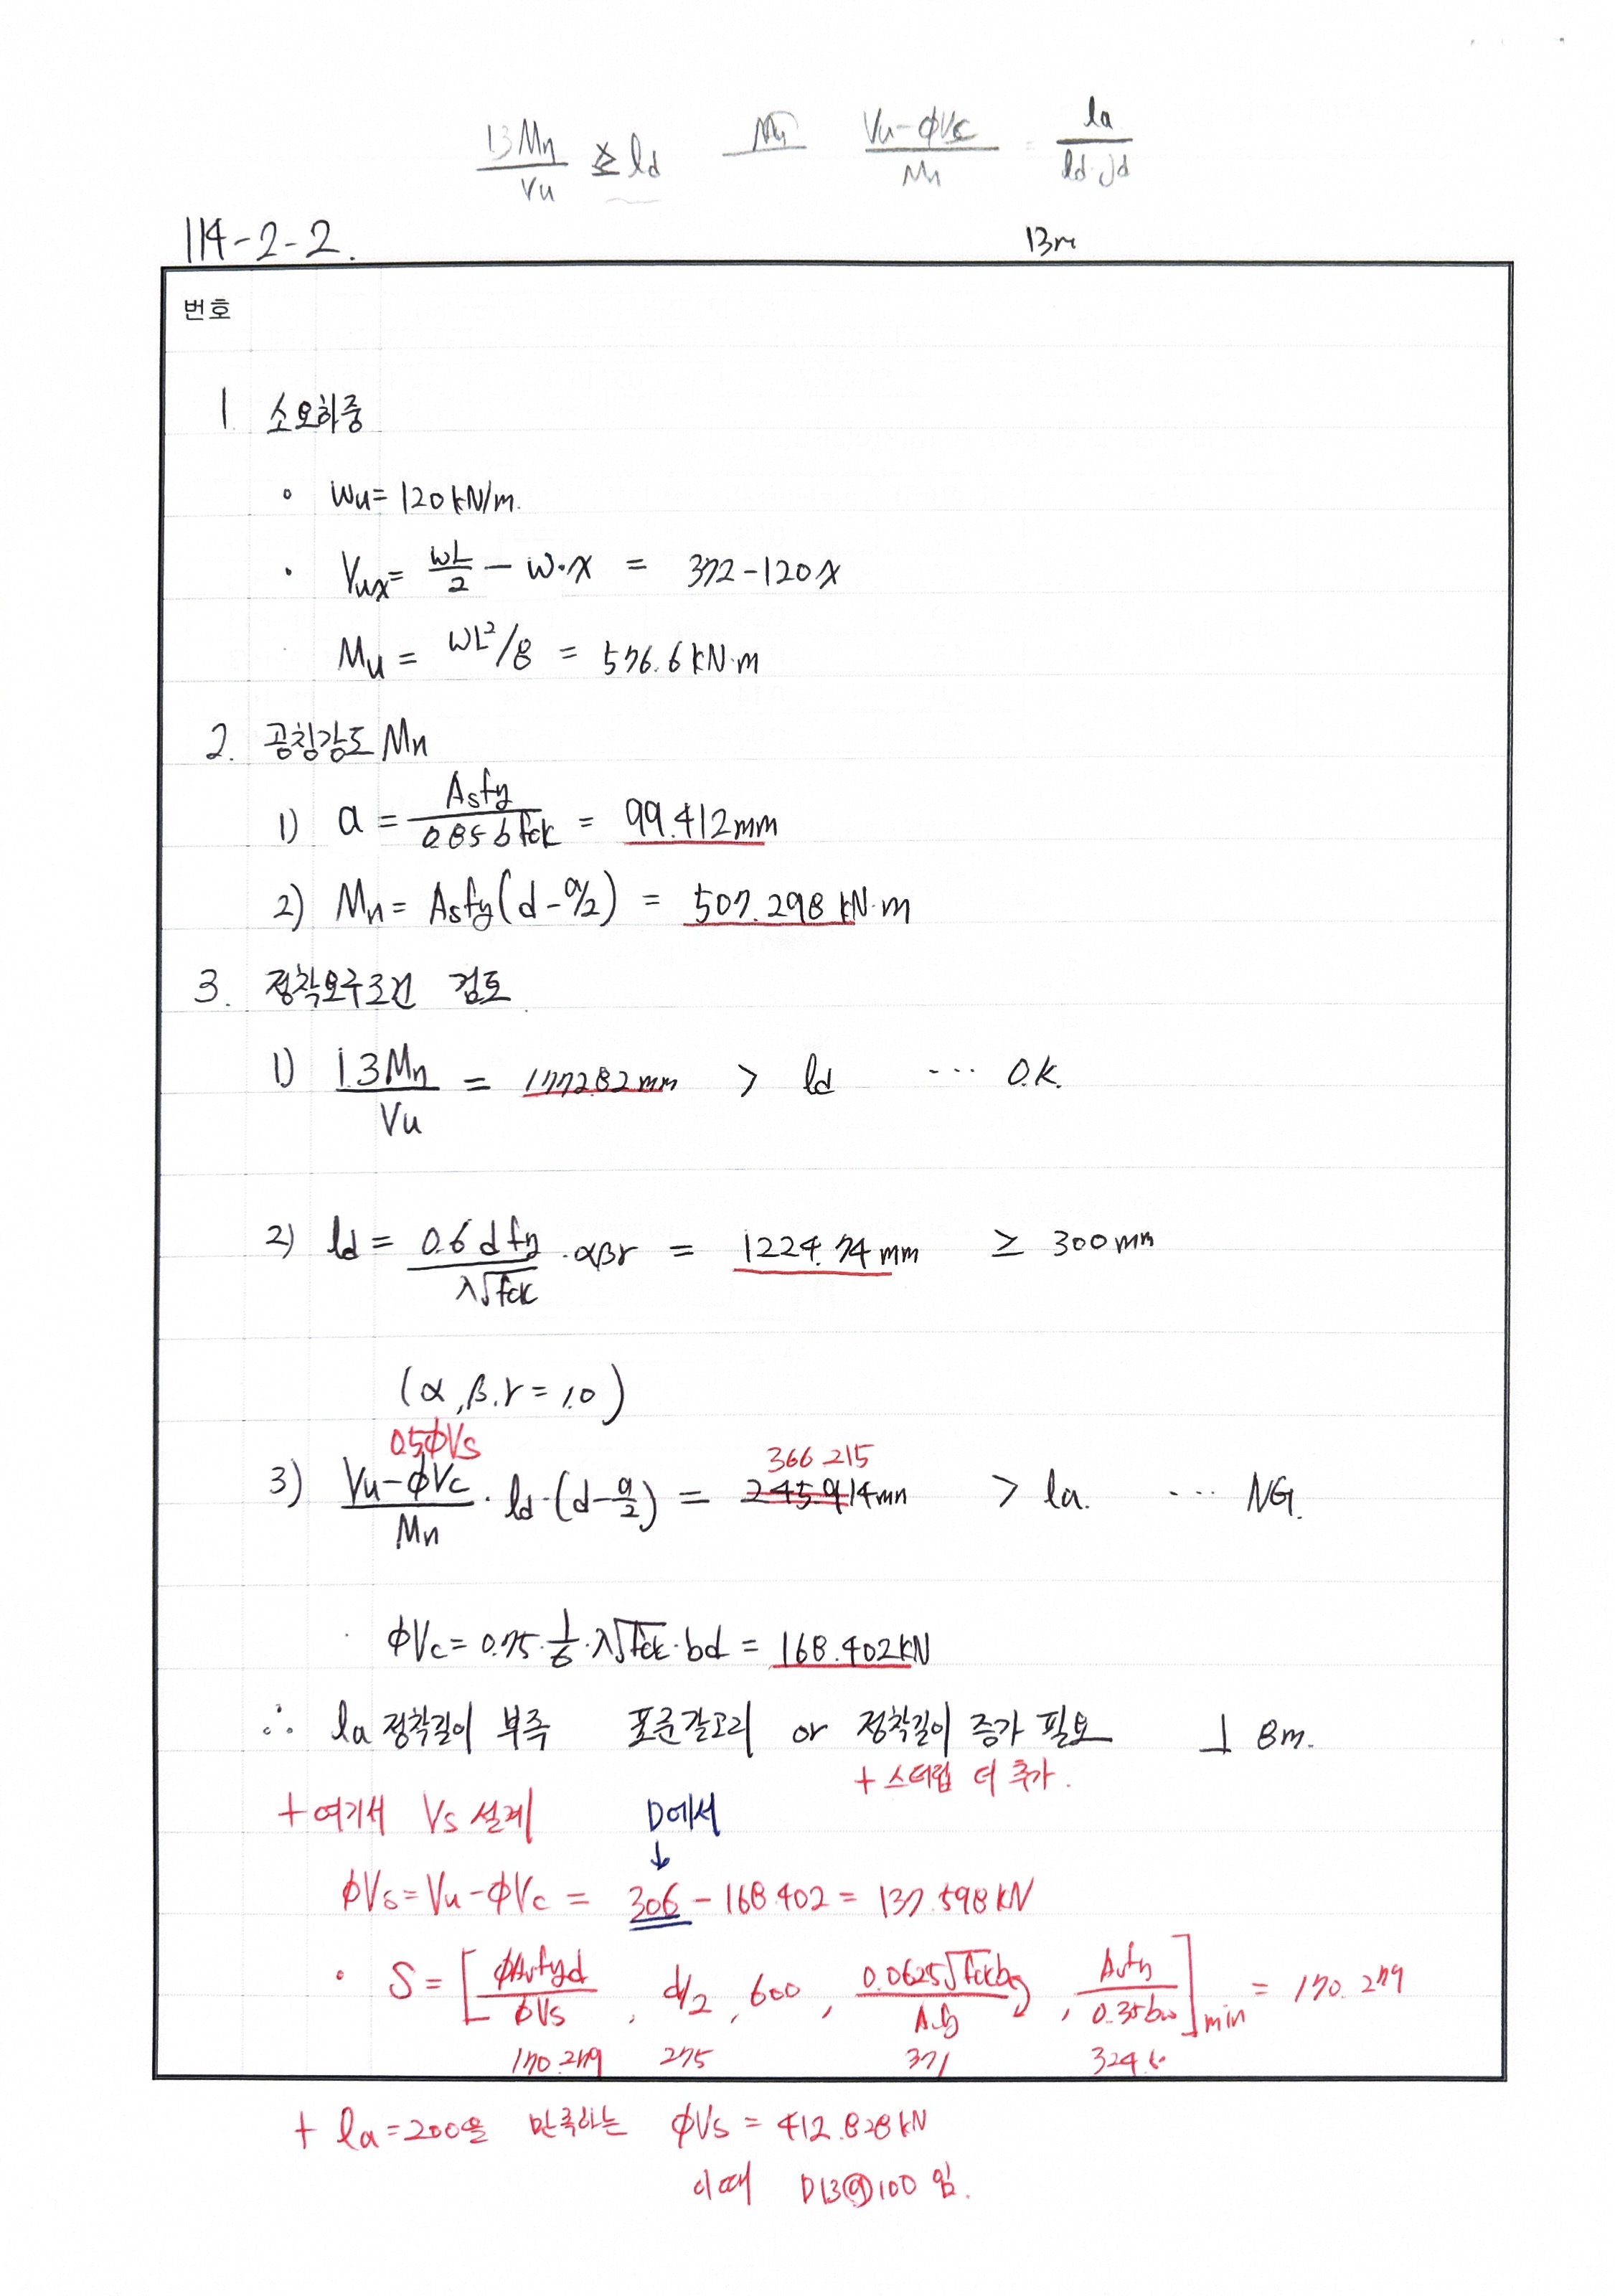 1.3Mn/Vu ≥ ld   Mn   Vu-ϕVc/Mn = la/ld·jd
114-2-2.   13m
번호
1 소요하중
∘ Wu = 120 kN/m.
· Vux = wL/2 - w·x = 372-120x
· Mu = wL²/8 = 576.6 kN·m
2. 공칭강도 Mn
1) a = Asfy/0.85 b fck = 99.412mm
2) Mn = Asfy(d-a/2) = 507.298 kN·m
3. 정착요구조건 검토
1) 1.3Mn/Vu = 1772.82mm > ld ... O.K.
2) ld = 0.6 d fy/λ√fck · αβγ = 1224.74mm ≥ 300mm
(α, β, γ = 1.0)
0.5ϕVs   366.215
3) Vu-ϕVc/Mn · ld·(d-a/2) = 245.914mm > la. ... NG.
· ϕVc = 0.75·1/6·λ√fck·bd = 168.402kN
∴ la 정착길이 부족 표준갈고리 or 정착길이 증가 필요 ⊥ 8m.
+ 스터럽 더 추가.
+ 여기서 Vs 설계   D에서
↓
ϕVs = Vu-ϕVc = 306 - 168.402 = 137.598 kN
∘ S = [ϕAvfyd/ϕVs, d/2, 600, 0.0625√fck b/Afy, Avfy/0.35bw]min = 170.279
170.279   275   371
+ la=200을 만족하는 ϕVs = 412.828 kN
이때 D13@100 임.